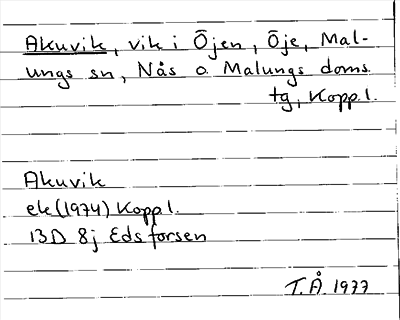 Akuvik, vik i Öjen, Öje, Mal-
ungs sn, Nås o Malungs doms
tg, Kopp.l.
Akuvik
ek (1974) Kopp.l.
13D 8j Edsforsen
T.Å. 1977